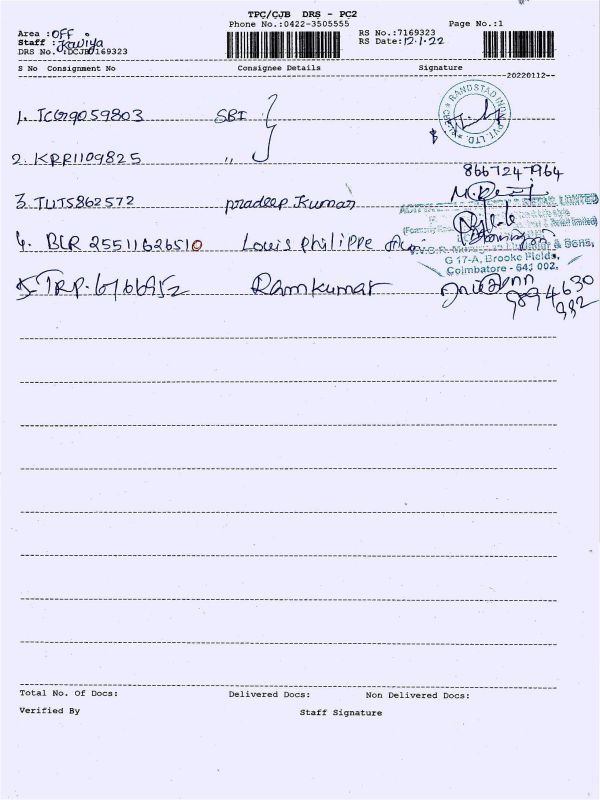 TPC/CJB DRS - PC2
Phone No.:0422-3505555
Page No.:1
Area :OFF
Staff :Kaviya
DRS No.:DCJB7169323
RS No.:7169323
RS Date:12.1.22
S No Consignment No Consignee Details Signature
20220112--
1. TCG9059803 SBI
RANDSTAD INDIA PVT. LTD.
2. KRR1109825 "
8667247964
3. TUT5862572 pradeep Kumar
4. BLR 25511626510 Louis Philippe
& Sons,
G 17-A, Brooke Fields,
Coimbatore - 641 002.
5 TRP. 6766952 Ramkumar
9894630
982
Total No. Of Docs: Delivered Docs: Non Delivered Docs:
Verified By Staff Signature